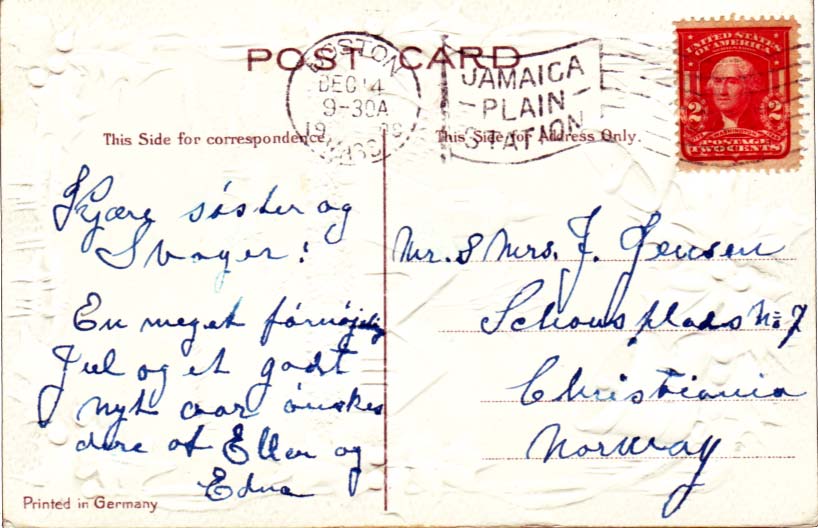 POST CARD
BOSTON
DEC 14
9-30A
19 08
MASS
JAMAICA
PLAIN
STATION
UNITED STATES
OF AMERICA
2 2
WASHINGTON
POSTAGE
TWO CENTS
This Side for correspondence.
Kjære søster og
Svoger!
En meget fórnøjelig
Jul og et godt
nyt aar ónskes
dere af Ellen og
Edna
Printed in Germany
This Side for Address Only.
Mr. & Mrs. J. Jensen
Schous plads No 7
Christiania
Norway